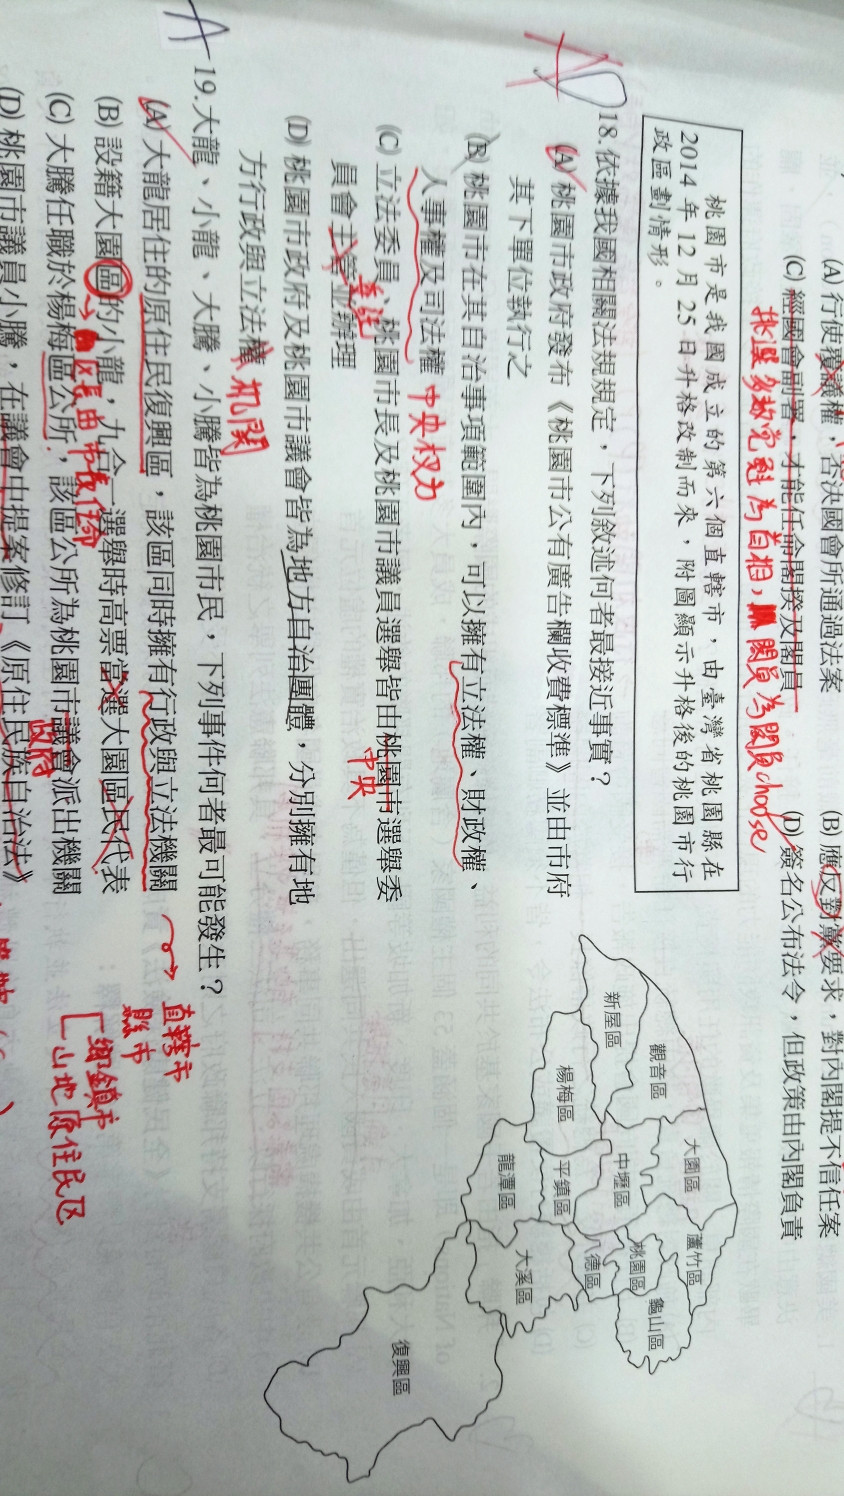 (A) 行使覆議權，否決國會所通過法案 (B) 應反對黨要求，對內閣提不信任案
(C) 經國會副署，才能任命閣揆及閣員 (D) 簽名公布法令，但政策由內閣負責
挑選多數党魁為首相，閣員為閣員choose
桃園市是我國成立的第六個直轄市，由臺灣省桃園縣在
2014 年 12 月 25 日升格改制而來，附圖顯示升格後的桃園市行
政區劃情形。
18.依據我國相關法規規定，下列敘述何者最接近事實？
(A) 桃園市政府發布《桃園市公有廣告欄收費標準》並由市府
其下單位執行之
(B) 桃園市在其自治事項範圍內，可以擁有立法權、財政權、
人事權及司法權 中央权力
(C) 立法委員、桃園市長及桃園市議員選舉皆由桃園市選舉委
中央
員會主管並辦理
(D) 桃園市政府及桃園市議會皆為地方自治團體，分別擁有地
方行政與立法權
机関
新屋區
觀音區
大園區
蘆竹區
楊梅區
中壢區
桃園區
龜山區
平鎮區
八德區
龍潭區
大溪區
復興區
A
19.大龍、小龍、大騰、小騰皆為桃園市民，下列事件何者最可能發生？
(A) 大龍居住的原住民復興區，該區同時擁有行政與立法機關
直轄市
縣市
鄉鎮市
山地原住民区
(B) 設籍大園區的小龍，九合一選舉時高票當選大園區民代表
区長由市長任命
(C) 大騰任職於楊梅區公所，該區公所為桃園市議會派出機關
政府
(D) 桃園市議員小騰，在議會中提案修訂《原住民族自治法》